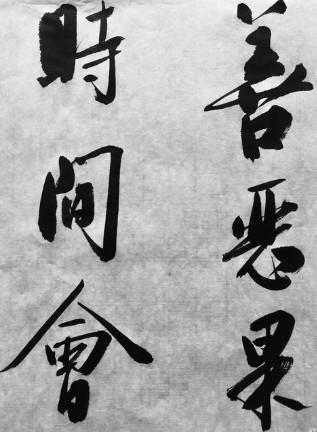 善惡果
時間會